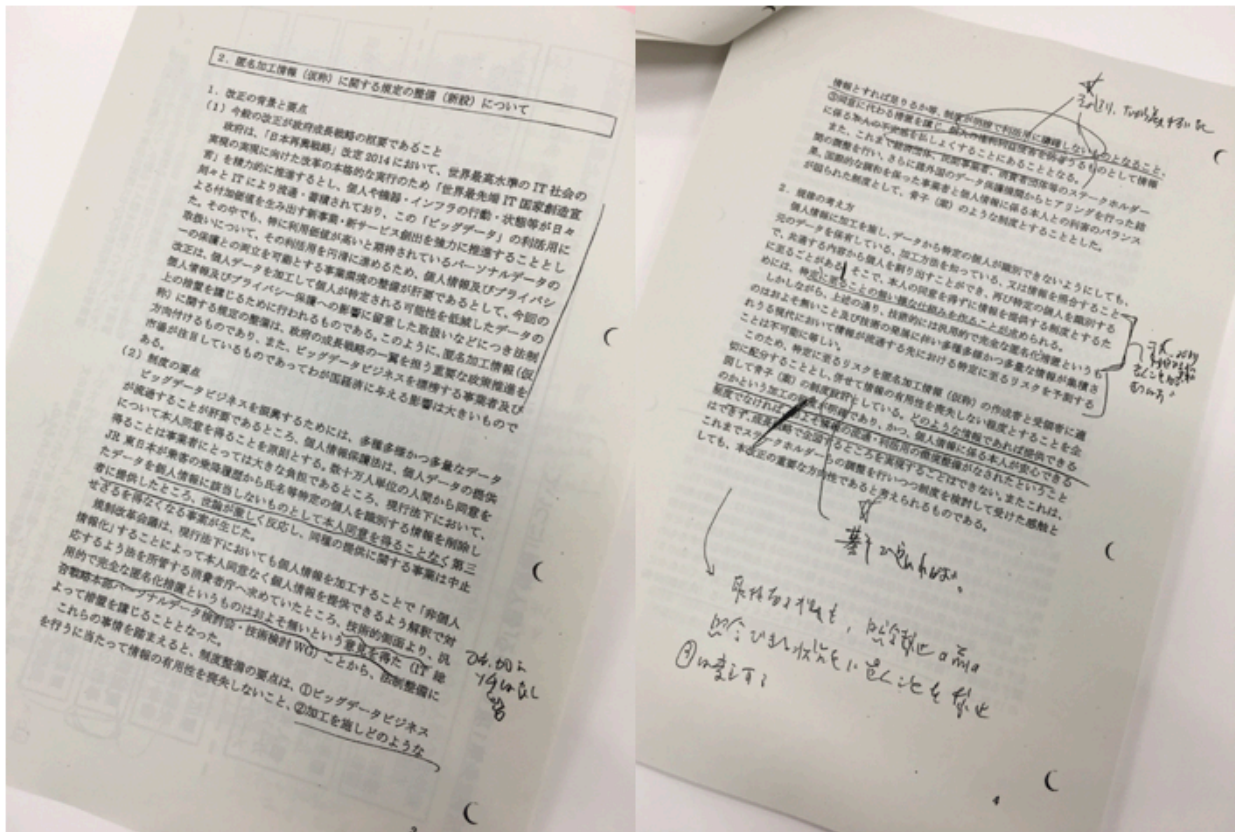 2．匿名加工情報（仮称）に関する規定の整備（新設）について
1．改正の背景と要点
（1）今般の改正が政府成長戦略の枢要であること
政府は、「日本再興戦略」改定2014において、世界最高水準のIT社会の
実現の実現に向けた改革の本格的な実行のため「世界最先端IT国家創造宣
言」を精力的に推進するとし、個人や機器・インフラの行動・状態等が日々
刻々とITにより流通・蓄積されており、この「ビッグデータ」の利活用に
よる付加価値を生み出す新事業・新サービス創出を強力に推進することとし
た。その中でも、特に利用価値が高いと期待されているパーソナルデータの
取扱いについて、その利活用を円滑に進めるため、個人情報及びプライバシ
ーの保護との両立を可能とする事業環境の整備が肝要であるとして、今回の
改正は、個人データを加工して個人が特定される可能性を低減したデータの
個人情報及びプライバシー保護への影響に留意した取扱いにつき法制
上の措置を講じるために行われるものである。このように、匿名加工情報（仮
称）に関する規定の整備は、政府の成長戦略の一翼を担う重要な政策推進を
方向付けるものであり、また、ビッグデータビジネスを標榜する事業者及び
市場が注目しているものであってわが国経済に与える影響は大きいもので
ある。
（2）制度の要点
ビッグデータビジネスを振興するためには、多種多様かつ多量なデータ
が流通することが肝要であるところ、個人情報保護法は、個人データの提供
について本人同意を得ることを原則とする。数十万人単位の人間から同意を
得ることは事業者にとっては大きな負担であるところ、現行法下において、
JR東日本が乗客の乗降履歴から氏名等特定の個人を識別する情報を削除し
たデータを個人情報に該当しないものとして本人同意を得ることなく第三
者に提供したところ、世論が激しく反応し、同種の提供に関する事業は中止
せざるを得なくなる事案が生じた。
規制改革会議は、現行法下においても個人情報を加工することで「非個人
情報化」することによって本人同意なく個人情報を提供できるよう解釈で対
応するよう法を所管する消費者庁へ求めていたところ、技術的側面より、汎
用的で完全な匿名化措置というものはおよそ無いという意見を得た（IT総
合戦略本部パーソナルデータ検討会・技術検討WG）ことから、法制整備に
よって措置を講じることとなった。
これらの事情を踏まえると、制度整備の要点は、①ビッグデータビジネス
を行うに当たって情報の有用性を喪失しないこと、②加工を施しどのような
3
情報とすれば足りるか等、制度が明確で利活用に躊躇しないものとなること、
③同意に代わる措置を講じ、個人の権利利益侵害を防ぎうるものとして情報
に係る本人の不安感を払しょくすることにあることとなる。
また、これまで経済団体、民間事業者、消費者団体等のステークホルダー
間の調整を行い、さらに諸外国のデータ保護機関からヒアリングを行った結
果、国際的な調和を保った事業者と個人情報に係る本人との利害のバランス
が図られた制度として、骨子（案）のような制度とすることとした。
2．規律の考え方
個人情報に加工を施し、データから特定の個人が識別できないようにしても、
元のデータを保有している、加工方法を知っている、又は情報を照合すること
で、共通する内容から個人を割り出すことができ、再び特定の個人を識別する
に至ることがある。そこで、本人の同意を得ずに情報を提供する制度とするた
めには、特定に至ることの無い様な仕組みを作ることが求められる。
しかしながら、上述の通り、技術的には汎用的で完全な匿名化措置というも
のはおよそ無いこと及び技術の発展に伴い多種多様かつ多量な情報が集積さ
れうる現代において情報が流通する先における特定に至るリスクを予測する
ことは不可能に等しい。
このため、特定に至るリスクを匿名加工情報（仮称）の作成者と受領者に適
切に配分することとし、併せて情報の有用性を喪失しない程度とすることを企
図して骨子（案）の制度設計としている。どのような情報であれば提供できる
のかという加工の程度が明確であり、かつ、個人情報に係る本人が安心できる
制度でなければ、およそ情報の流通・利活用の環境整備がなされたということ
はできず、成長戦略で企図するところを実現することはできない。またこれは、
これまでステークホルダーらの調整を行いつつ制度を検討して受けた感触と
しても、本改正の重要な方向性であると考えられるものである。
4